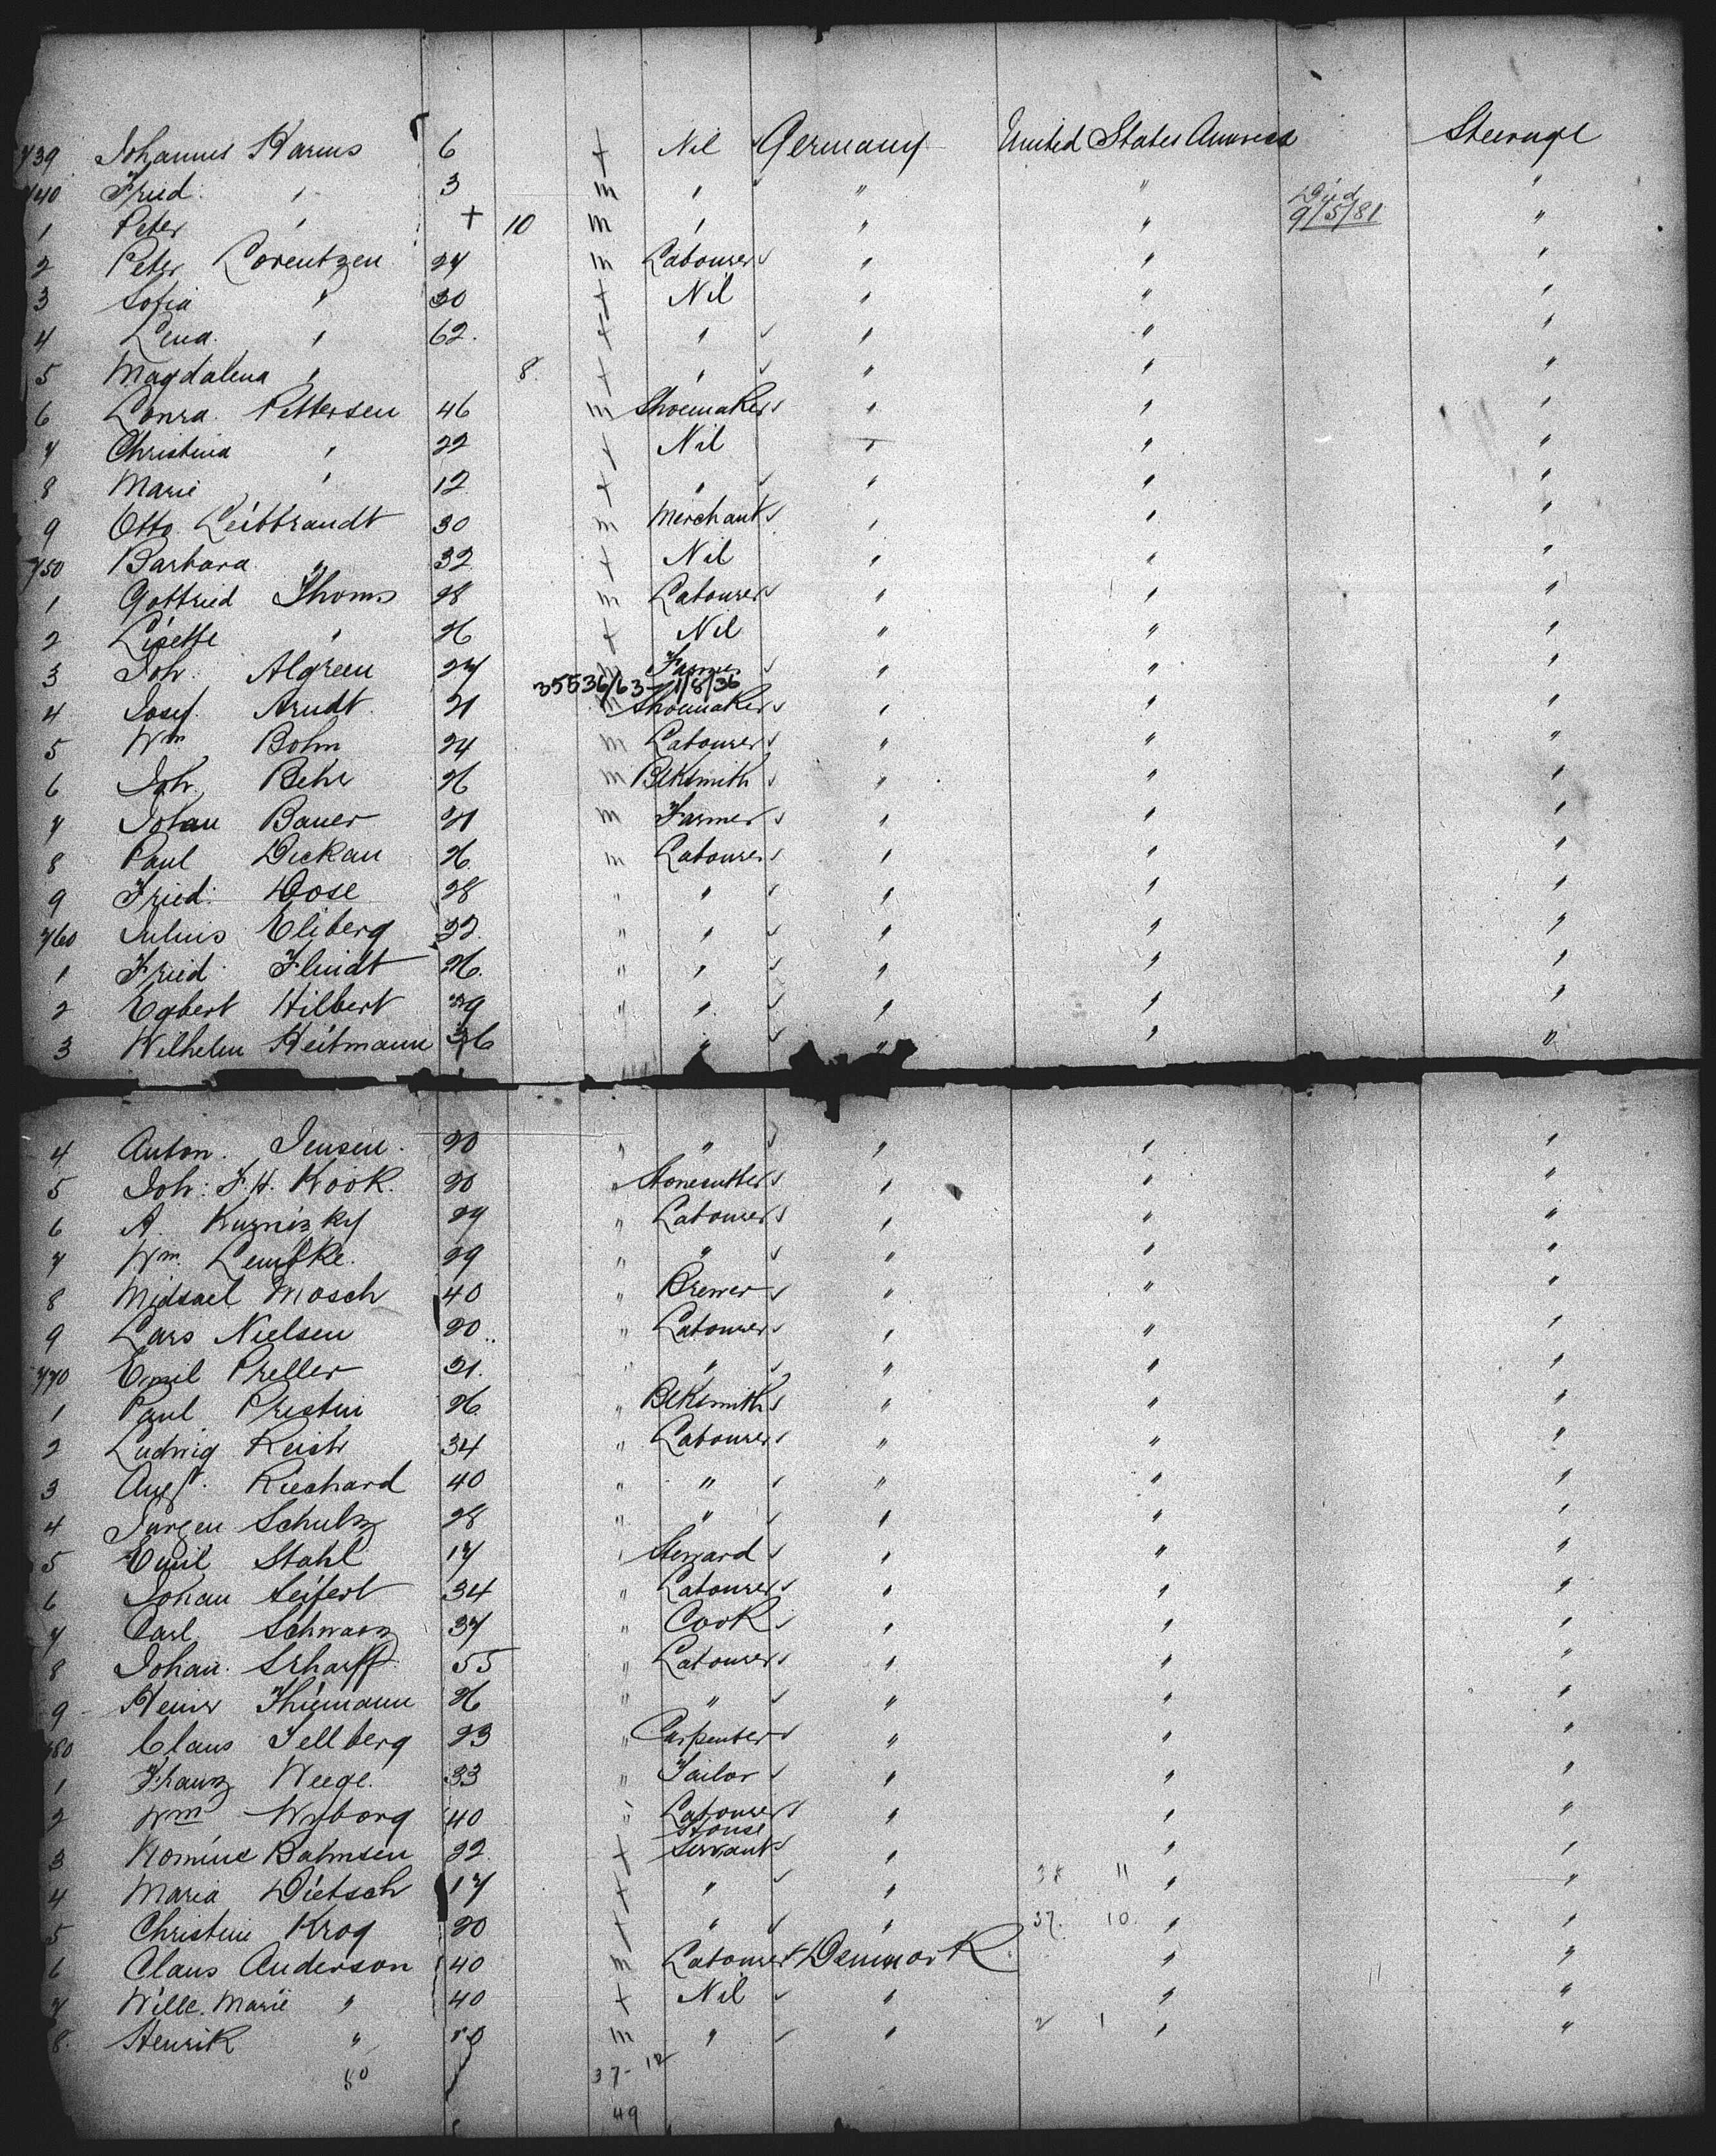 739 Johannes Harms 6 f Nil Germany United States America Steerage
740 Fried: " 3 m " " " "
1 Peter " + 10 m " " " Died 9/5/81 "
2 Peter Lorentzen 27 m Labourer " " "
3 Sofia " 30 f Nil " " "
4 Lena " 62. f " " " "
5 Magdalena " 8. f " " " "
6 Conra. Pettersen 46 m Shoemaker " " "
7 Christina " 22 f Nil " " "
8 Marie " 12 f " " " "
9 Otto Leibbrandt 30 m Merchant " " "
750 Barbara " 32 f Nil " " "
1 Gottfried Thoms 28 m Labourer " " "
2 Lisette " 26 f Nil " " "
3 Joh. Algreen 27 m Farmer " " "
35536/63-1/8/36
4 Josef. Arndt 21 m Shoemaker " " "
5 Wm Bohm 24 m Labourer " " "
6 Joh. Behr 26 m Blksmith " " "
7 Johan Bauer 21 m Farmer " " "
8 Paul Dickau 26 m Labourer " " "
9 Fried: Dose 28 " " " " "
760 Julius Eliberg 22. " " " " "
1 Fried. Flindt 26. " " " " "
2 Egbert Hilbert 39 " " " " "
3 Wilhelm Heitmann 36 " " " "
4 Anton. Jensen. 20 " " " " "
5 Joh: F. H. Kook. 20 " Stonecutter " " "
6 A. Kuznizky 27 " Labourer " " "
7 Wm. Lembke. 29 " " " " "
8 Midsael Mosch 40 " Brewer " " "
9 Lars Nielsen 20 " Labourer " " "
770 Emil Preller 31. " " " " "
1 Paul Prestin 26 " Blksmith " " "
2 Ludwig Reich 34 " Labourer " " "
3 Augt. Riechard 40 " " " " "
4 Jurgen Schulz 28 " " " " "
5 Emil Stahl 17 " Steward " " "
6 Johan Seifert 34 " Labourer " " "
7 Carl Schwarz 37 " Cook " " "
8 Johan. Scharff 55 " Labourer " " "
9 Heinr Thiemann 26 " " " " "
780 Claus Tellberg 23 " Carpenter " " "
1 Franz Weege. 33 " Tailor " " "
2 Wm Wyborg 40 " Labourer " " "
3 Nomine Bahnsen 22 f House Servant " " "
4 Maria Dietsch 17 f " " 38 11 " "
5 Christine Krog 20 f " " 37. 10. " "
6 Claus Anderson 40 m Labourer Denmark " "
7 Wille. Marie " 40 f Nil " " "
8. Henrik " m " " 2 1 " "
50 37- 12
49